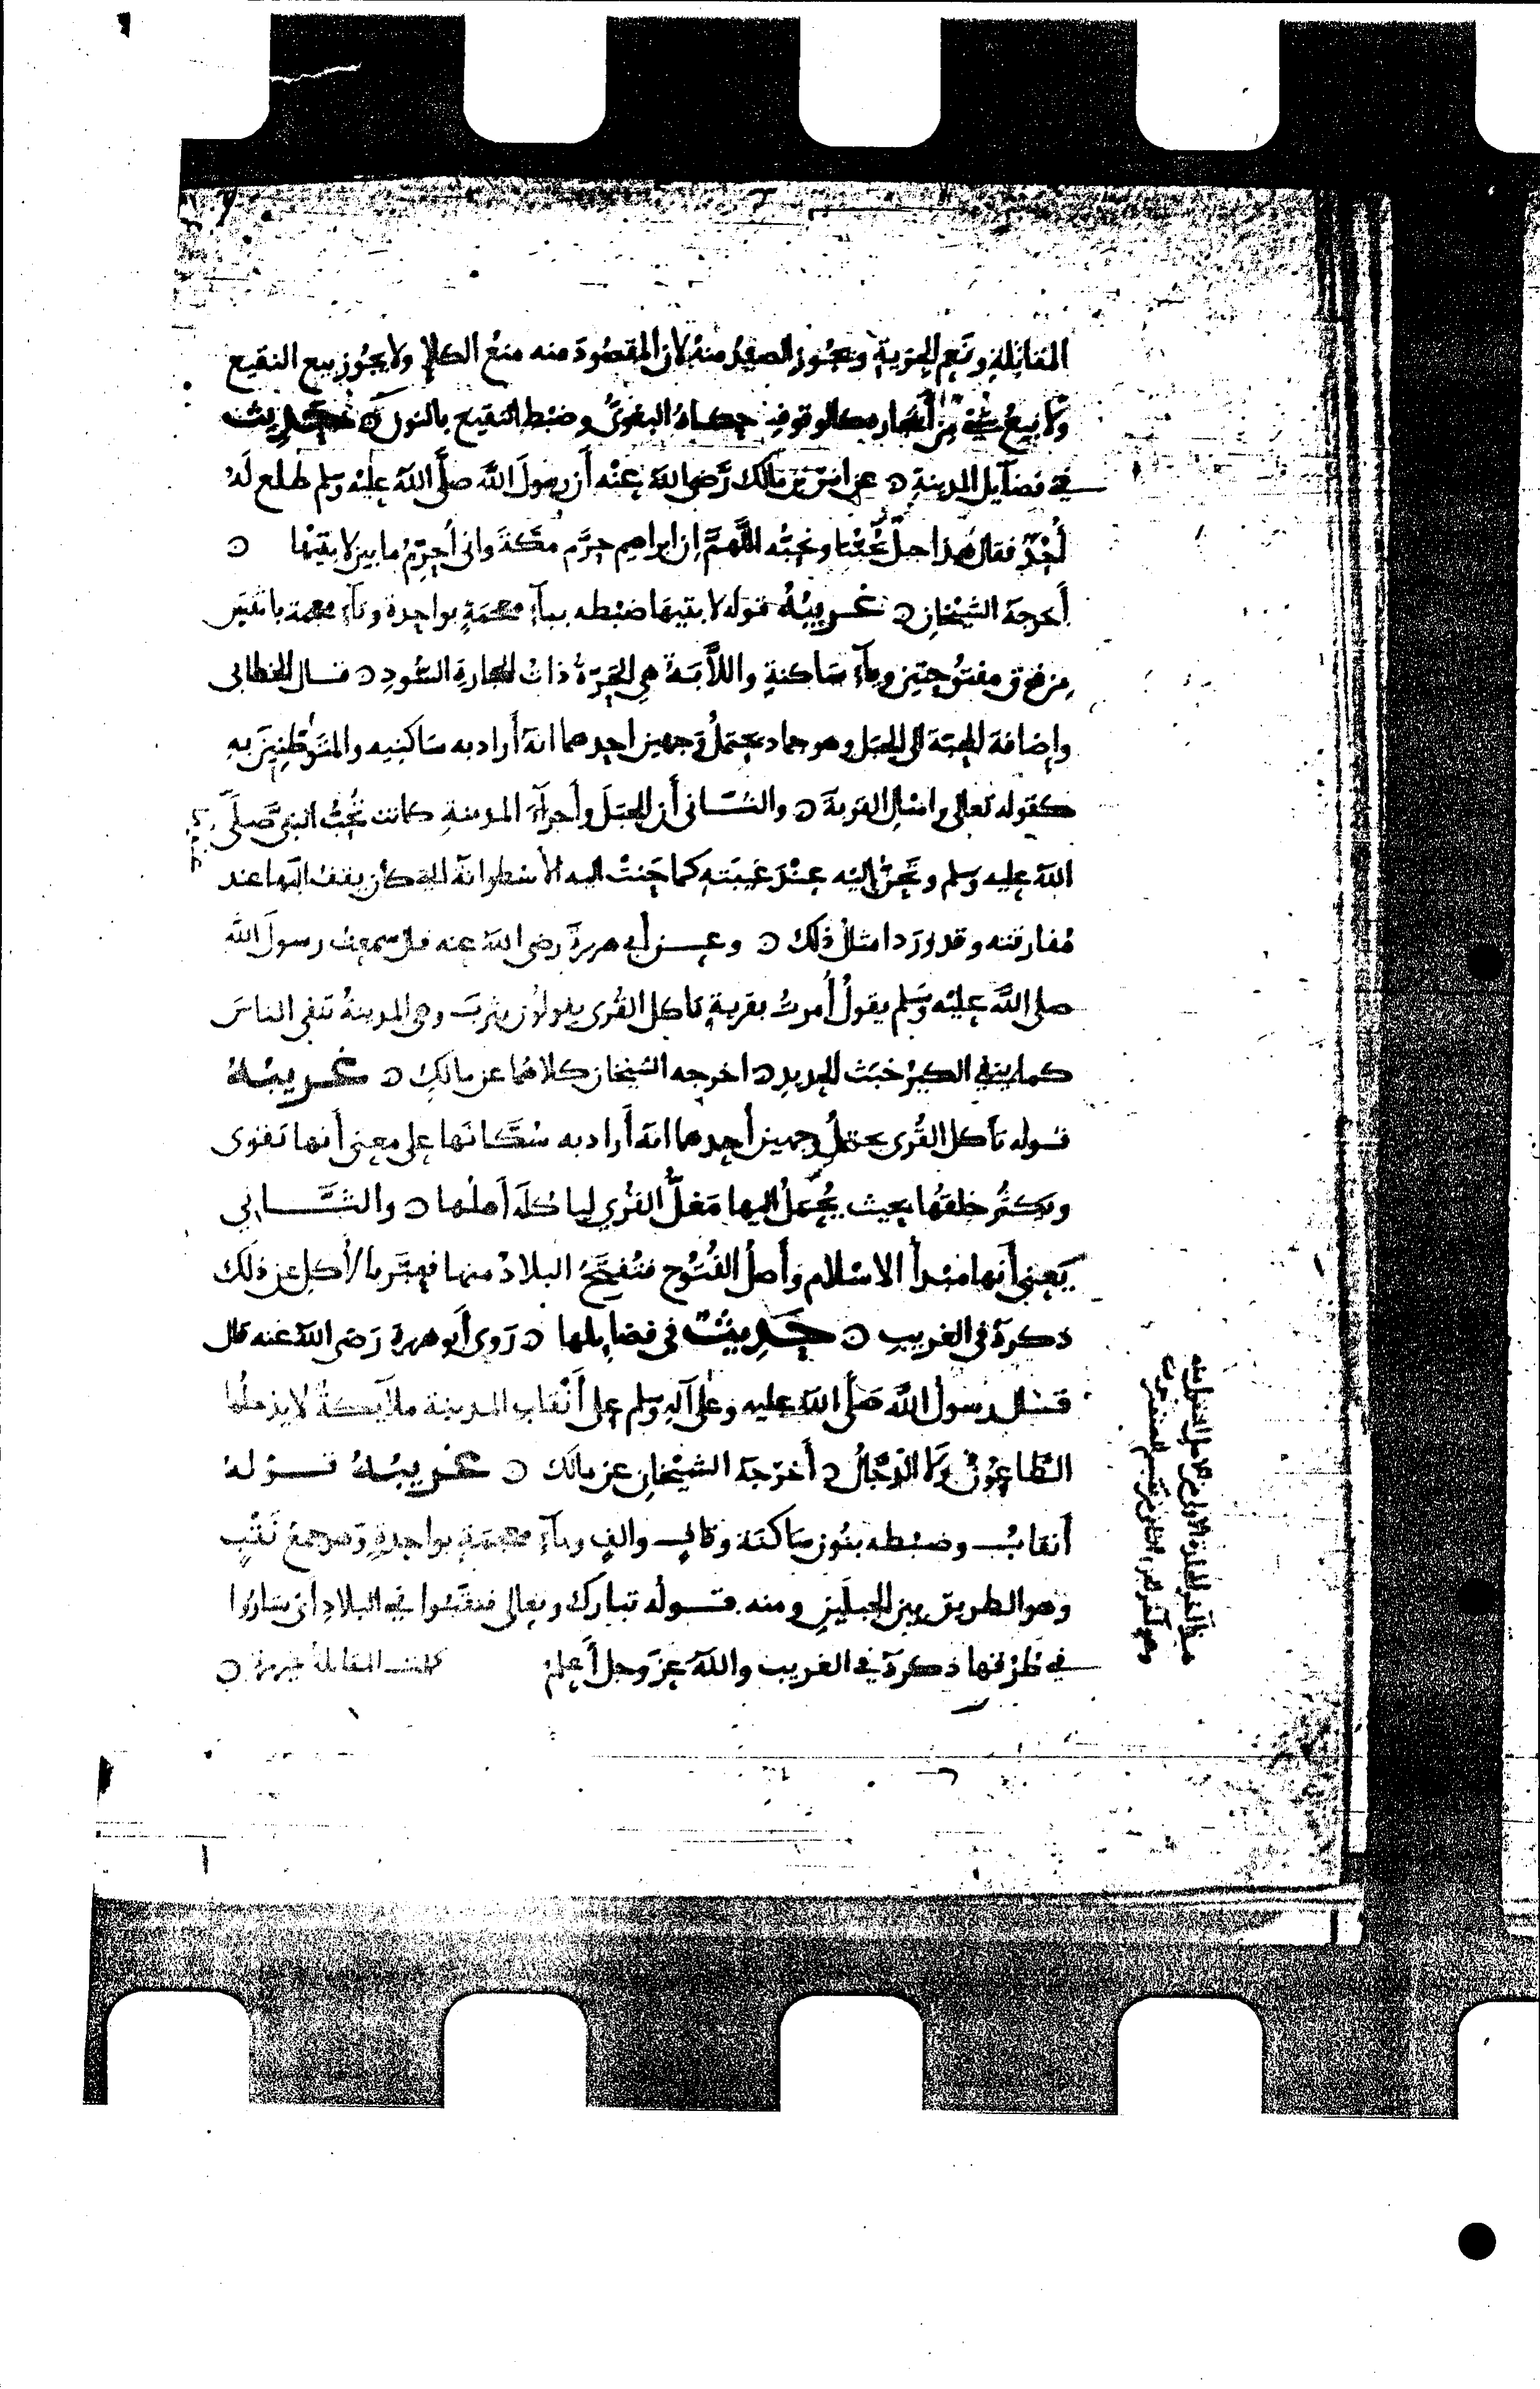 المقاتلة ونعم الجزية ويجوز الصيد منه لان المقصود منه منع الكلإ ولا يجوز بيع النقيع
ولا بيع شيء من أشجاره كالموقوف حكاه البغوي وضبط النقيع بالنون ○ حديث
في فضآيل المدينة ○ عن انس بن مالك رضي الله عنه أن رسول الله صلى الله عليه وسلم طلع له
أُحُدٌ فقال هذا جبل يحبنا ونحبه اللهم إن ابراهيم حرَّم مكة واني أحرِّم ما بين لابتيها ○
أخرجه الشيخان ○ غريبه قوله لابتيها ضبطه ببآء معجمة بواحدة وتآء معجمة باثنتين
من فوق مفتوحتين ويآء ساكنة واللابة هي الحرة ذات الحجارة السود ○ قال الخطابي
وإضافة المحبة الى الجبل وهو جماد يحتمل وجهين احدهما انه أراد به ساكنيه والمتوطنين به
كقوله تعالى واسال القرية ○ والثاني أن الجبل وأجزآء المدينة كانت تحب النبي صلى
الله عليه وسلم وتحن اليه عند غيبته كما حنت اليه الأسطوانة التي كان يقف اليها عند
مفارقته وقد ورد امثال ذلك ○ وعن أبي هريرة رضي الله عنه قال سمعت رسول الله
صلى الله عليه وسلم يقول أُمرت بقرية تاكل القرى يقولون يثرب وهي المدينة تنفي الناس
كما ينفي الكير خبث الحديد ○ اخرجه الشيخان كلاهما عن مالك ○ غريبه
قوله تأكل القرى يحتمل وجهين أحدهما انه أراد به سكانها على معنى أنها تقوى
ويكثر خلقها بحيث يُحمل اليها مَغَلُّ القُرى لياكله أهلها ○ والثاني
يعني أنها مبدأ الاسلام وأصل الفتوح فتفتح البلاد منها فعبَّر بالأكل عن ذلك
ذكره في الغريب ○ حديث في فضايلها ○ روى أبو هريرة رضي الله عنه قال
قال رسول الله صلى الله عليه وعلى آله وسلم على أنقاب المدينة ملآيكة لا يدخلها
الطاعون ولا الدجال ○ أخرجه الشيخان عن مالك ○ غريبه قوله
أنقاب وضبطه بنون ساكنة وقاف والف وبآء معجمة بواحدة وهو جمع نَقْب
وهو الطريق بين الجبلين ومنه قوله تبارك وتعالى فنقبوا في البلاد أي ساروا
في طرقها ذكره في الغريب والله عز وجل أعلم